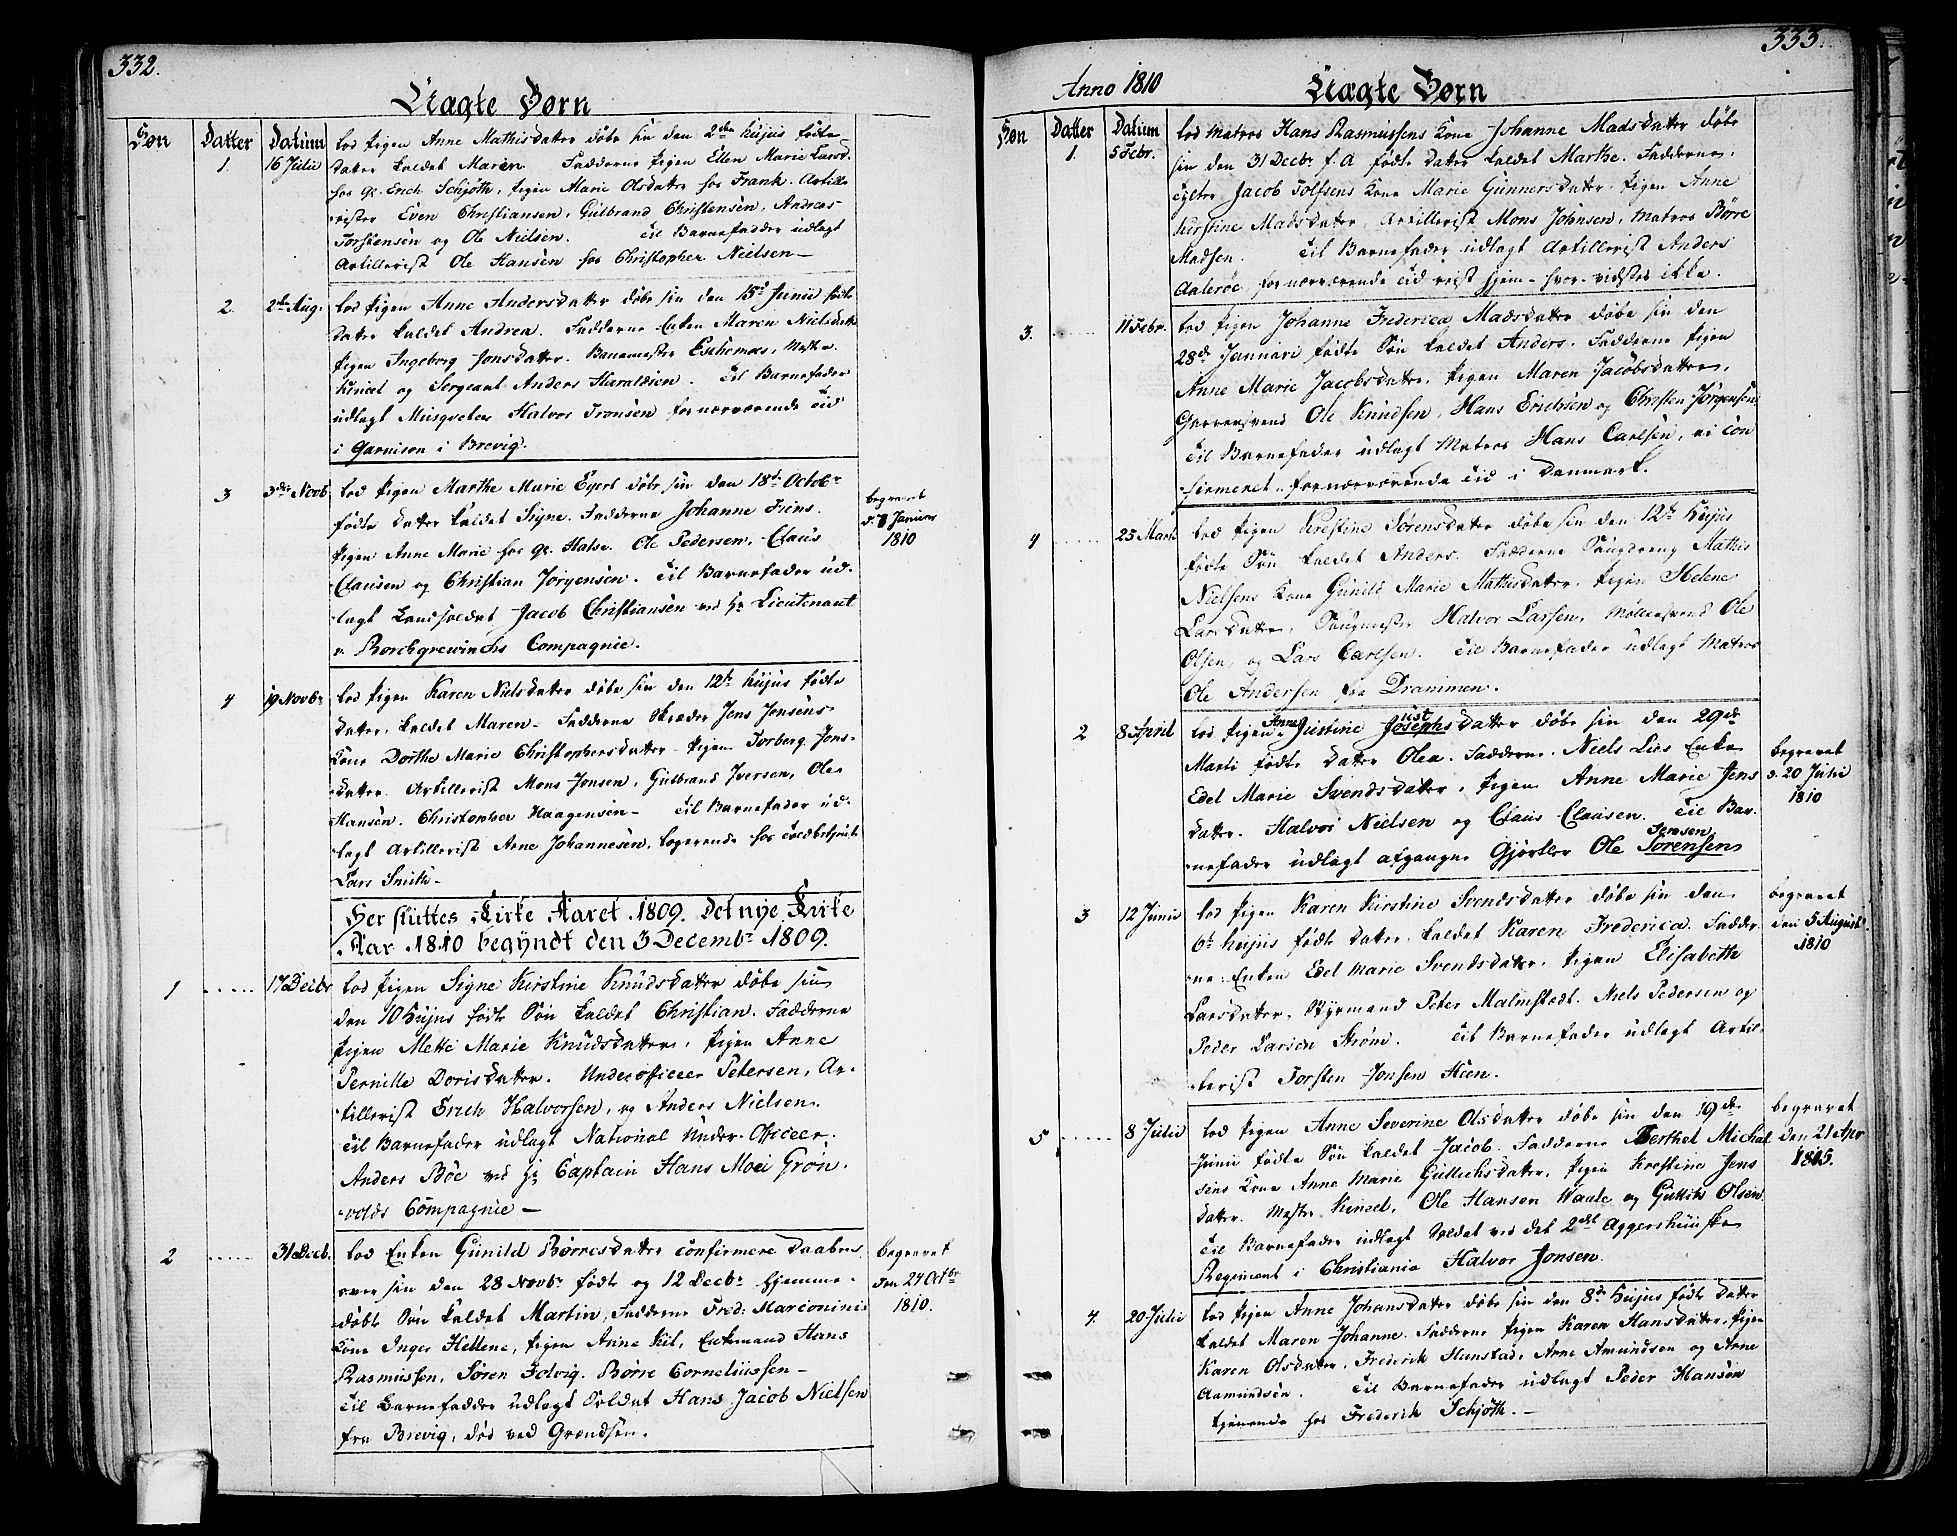 332.
Uægte Børn
Søn Datter Datum
1. 16 Julii
lod Pigen Anne Mathisdatter døbe sin den 2den hujus fødte
Datter kaldet Maren. Fadderne Pigen Ellen Marie Larsd.
hos Hr. Erich Schjøth, Pigen Marie Olsdatter hos Frank. Artille
rister Even Christiansen, Gulbrand Christensen, Andreas
Torstensen og Ole Nielsen. Til Barnefader udlagt
Artillerist Ole Hansen hos Christopher Nielsen –
2. 2den Aug.
lod Pigen Anne Andersdatter døbe sin den 15de Junii fødte
Datter kaldet Andrea. Fadderne Enken Maren Nielsdatter
Pigen Ingeborg Jonsdatter. Mester
Kineel og Sergeant Anders Haraldsen. Til Barnefader
udlagt Musqueteer Halvor Tronsen for nærværende Tid
i Garnison i Brevig.
3 3die Novb.
lod Pigen Marthe Marie Egert døbe sin den 18de Octobr
fødte Datter kaldet Signe. Fadderne Johanne Friis.
Pigen Anne Marie hos Hr. Halse. Ole Pedersen, Claus
Clausen og Christian Jørgensen. Til Barnefader ud-
lagt Landsoldat Jacob Christiansen ved Hr Lieutenant
v. Borchgrewinchs Compagnie.
begravet
d. 7 Januar
1810
4 19 Novbr
lod Pigen Karen Nielsdatter døbe sin den 12te hujus fødte
Datter, kaldet Maren – Fadderne Skræder Jens Jensens
Kone Dorthe Marie Christophersdatter – Pigen Torberg Jons-
datter. Artillerist Mons Jonsen, Gulbrand Iversen, Ole
Hansen. Christopher Haagensen – Til Barnefader ud-
lagt Artillerist Arne Johannesen, logerende hos Toldbetjent
Lars Smith –
Her sluttes Kirke Aaret 1809. Det nye Kirke
Aar 1810 begyndt den 3 Decembr 1809.
1 17 Decbr
lod Pigen Signe Kirstine Knudsdatter døbe sin
den 10 hujus fødte Søn kaldet Christian. Fadderne
Pigen Mette Marie Knudsdatter, Pigen Anne
Pernille Dorisdatter. Underofficeer Petersen, Ar-
tillerist Erich Halvorsen, og Anders Nielsen.
Til Barnefader udlagt National Under-Officeer
Anders Bøe ved Hr Captain Hans Moei Grøn-
volds Compagnie –
2 31 Decb.
lod Enken Gunild Børresdatter confirmere Daaben
over sin den 28 Novbr fødte og 12 Decbr hjemme-
døbte Søn kaldet Martin, Fadderne Fred: Marconinis
Kone Inger Hellene, Pigen Anne Kiil, Enkemand Hans
Rasmussen, Søren Solvig. Børre Corneliussen –
Til Barnefader udlagt Soldat Hans Jacob Nielsen
fra Brevig, død ved Grændsen.
begravet
den 24 Octbr
1810.
333.
Anno 1810
Uægte Børn
Søn Datter Datum
1. 5 Febr.
lod Matros Hans Rasmussens Kone Johanne Madsdatter døbe
sin den 31 Decbr f. A fødte Datter kaldet Marthe. Fadderne
Jacob Tolfsens Kone Marie Gunnersdatter, Pigen Anne
Kirstine Madsdatter, Artillerist Mons Johnsen, Matros Børre
Madsen. Til Barnefader udlagt Artillerist Anders
Aalerøe for nærværende Tid reist hjem – hvor – vidstes ikke.
3. 11 Febr.
lod Pigen Johanne Frederica Madsdatter døbe sin den
28de Januari fødte Søn kaldet Anders. Fadderne Pigen
Anne Marie Jacobsdatter, Pigen Maren Jacobsdatter,
Garversvend Ole Knudsen, Hans Erichsen og Christen Jørgensen
Til Barnefader udlagt Matros Hans Carlsen, ei Con
firmeret – for nærværende Tid i Danmark.
4 25 Marts
lod Pigen Kirstine Sørensdatter døbe sin den 12te hujus
fødte Søn kaldet Anders. Fadderne Saugdreng Mathis
Nielsens Kone Gunild Marie Mathisdatter, Pigen Helene
Larsdatter, Saugmester Halvor Larsen, Møllersvend Ole
Olsen, og Lars Carlsen. Til Barnefader udlagt Matros
Ole Andersen fra Drammen.
2 8 April
lod Pigen Anne Justine Josephsdatter døbe sin den 29de
Marti fødte Datter Olea. Fadderne. Niels Lies Enke
Edel Marie Svendsdatter, Pigen Anne Marie Jens
datter. Halvor Nielsen og Claus Clausen. Til Bar-
nefader udlagt afgangne Gjørtler Ole Sørensen Jensen
begravet
d. 20 Julii
1810
3 12 Junii
lod Pigen Karen Kirstine Svendsdatter døbe sin den
6te hujus fødte Datter, kaldet Karen Frederica. Fadder
ne: Enken Edel Marie Svendsdatter, Pigen Elisabeth
Larsdatter, Styrmand Peter Malmstedt. Niels Pedersen og
Peder Larsen Strøm. Til Barnefader udlagt Artil-
lerist Torsten Jonsen Hien.
begravet
den 5 August
1810
5 8 Julii
lod Pigen Anne Severine Olsdatter døbe sin den 19de
Junii fødte Søn kaldet Jacob. Fadderne Berthel Michel
sens Kone Anne Marie Gullichsdatter, Pigen Kirstine Jens
datter. Mester Kineel, Ole Hansen Waale og Gullik Olsen
Til Barnefader udlagt Soldat ved det 2det Aggershuuske
Regiment i Christiania Halvor Jonsen.
begravet
den 21 Apr
1815.
4. 20 Julii
lod Pigen Anne Johansdatter døbe sin den 8de hujus fødte Datter
kaldet Maren Johanne. Fadderne Pigen Karen Hansdatter, Pigen
Karen Olsdatter, Frederik Hunstad, Arne Amundsen og Arne
Aamundsen. Til Barnefader udlagt Peder Hansen
tjenende hos Frederik Schjøth. –